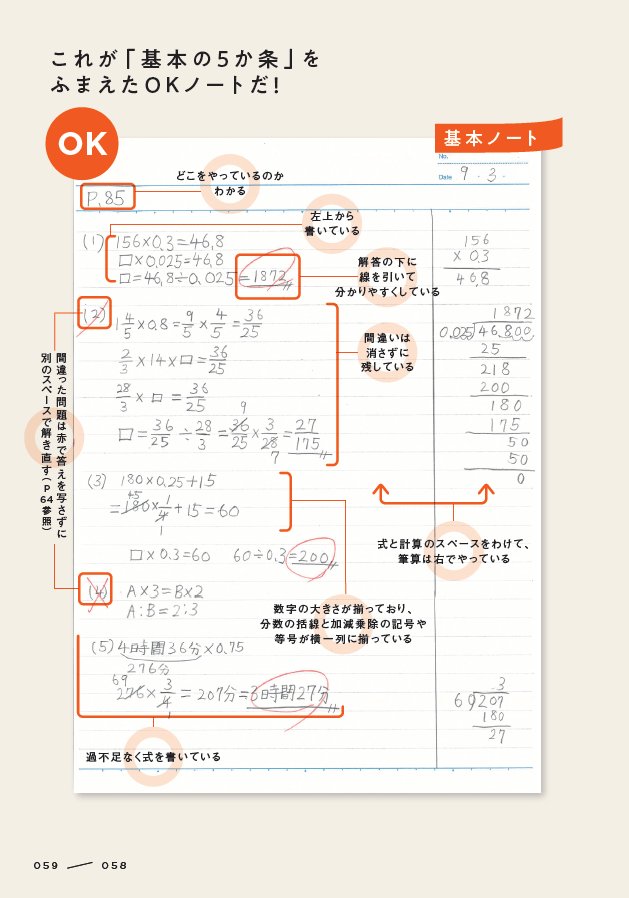 これが「基本の5か条」を
ふまえたOKノートだ!
OK
基本ノート
No.
Date 9 . 3 .
どこをやっているのか
わかる
P.85
左上から
書いている
(1) 156×0.3=46.8
□×0.025=46.8
□=46.8÷0.025=1872
解答の下に
線を引いて
分かりやすくしている
156
× 0.3
46.8
(2) 1 4/5 ×0.8= 9/5 × 4/5 = 36/25
2/3 ×14×□= 36/25
28/3 × □ = 36/25
□= 36/25 ÷ 28/3 = 36/25 × 3/28 = 27/175
9
7
間違いは
消さずに
残している
間違った問題は赤で答えを写さずに
別のスペースで解き直す(P64参照)
1872
0.025 46.800
25
218
200
180
175
50
50
0
(3) 180×0.25+15
45
=180× 1/4 +15=60
1
□×0.3=60 60÷0.3=200
式と計算のスペースをわけて、
筆算は右でやっている
(4) A×3=B×2
A:B=2:3
数字の大きさが揃っており、
分数の括線と加減乗除の記号や
等号が横一列に揃っている
(5) 4時間36分×0.75
276分
69
276× 3/4 = 207分=3時間27分
1
3
69 207
180
27
過不足なく式を書いている
059 058